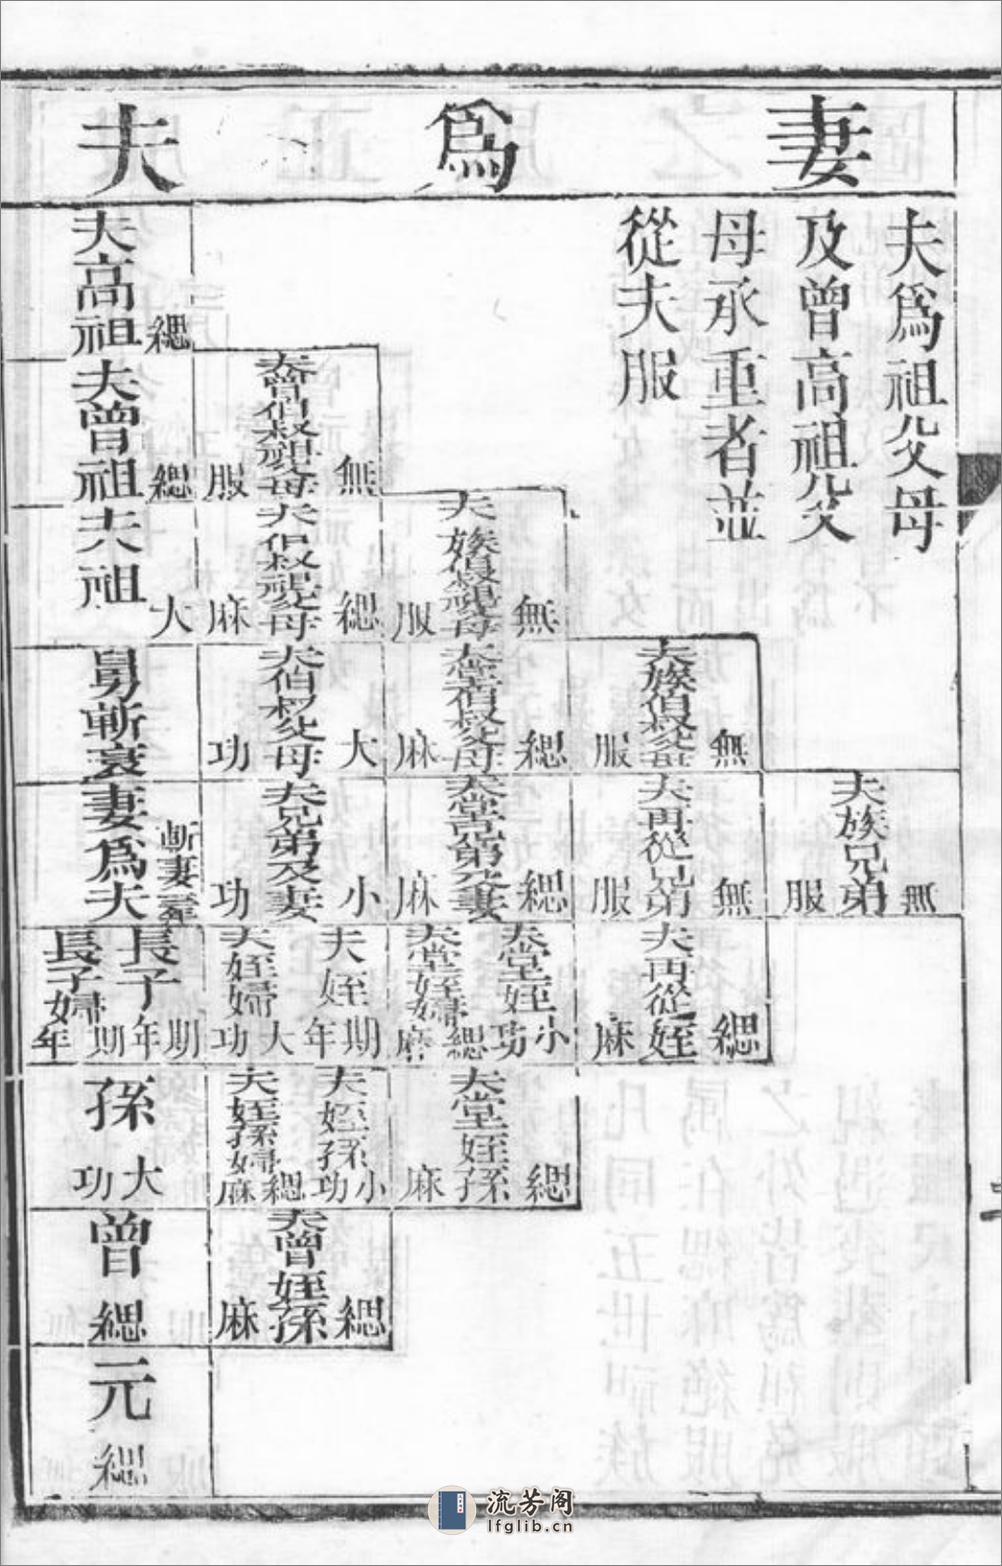 妻爲夫
夫爲祖父母
及曾高祖父
母承重者並
從夫服
夫高祖 緦
夫曾祖 緦
夫曾伯叔祖父母 無服
夫祖 大
夫伯叔祖父母 緦麻
夫族伯叔祖父母 無服
舅斬衰
夫伯叔父母 大功
夫堂伯叔父母 緦麻
夫族伯叔父母 無服
妻爲夫 斬
夫兄弟及妻 小功
夫堂兄弟及妻 緦麻
夫再從兄弟 無服
夫族兄弟 無服
長子 期年
長子婦 期年
夫姪 期年
夫姪婦 大功
夫堂姪 小功
夫堂姪婦 緦麻
夫再從姪 緦麻
孫 大功
夫姪孫 小功
夫姪孫婦 緦麻
夫堂姪孫 緦麻
曾 緦
夫曾姪孫 緦麻
元 緦
流芳阁
lfglib.cn